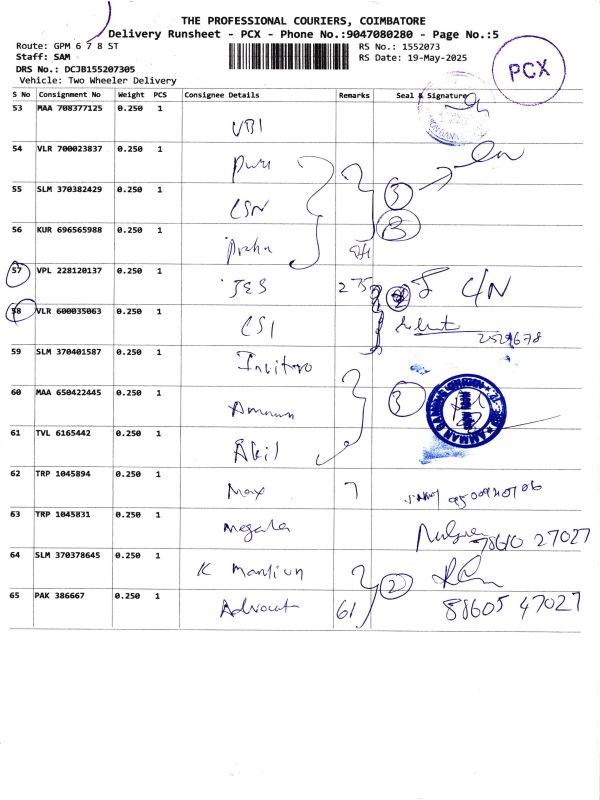 THE PROFESSIONAL COURIERS, COIMBATORE
Delivery Runsheet - PCX - Phone No.:9047080280 - Page No.:5
Route: GPM 6 7 8 ST
RS No.: 1552073
Staff: SAM
RS Date: 19-May-2025
DRS No.: DCJB155207305
Vehicle: Two Wheeler Delivery
PCX
S No Consignment No Weight PCS Consignee Details Remarks Seal & Signature
53 MAA 708377125 0.250 1 UBI
54 VLR 700023837 0.250 1
55 SLM 370382429 0.250 1 CSN 3
56 KUR 696565988 0.250 1 3
57 VPL 228120137 0.250 1 JES 275 8 C/N
58 VLR 600035063 0.250 1 CSI
59 SLM 370401587 0.250 1
60 MAA 650422445 0.250 1 3
61 TVL 6165442 0.250 1 Akil
62 TRP 1045894 0.250 1 Max 7
63 TRP 1045831 0.250 1 Megala 78610 27027
64 SLM 370378645 0.250 1 K 2
65 PAK 386667 0.250 1 Advocat 61 88605 47027